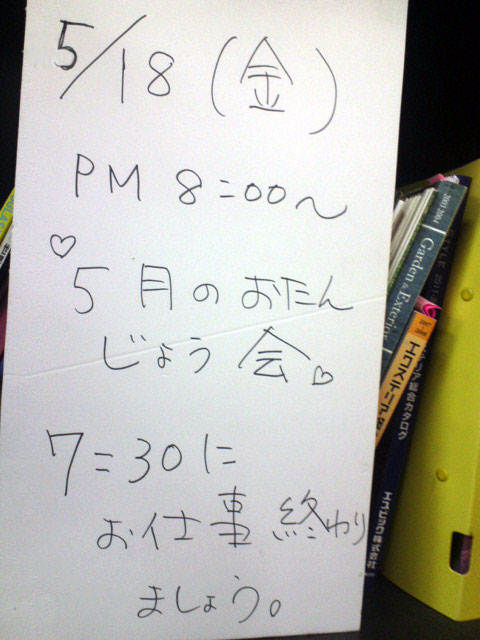 5/18(金)
PM 8:00〜
♡
5月のおたん
じょう会♡
7:30に
お仕事終わり
ましょう。
2003.2004
Garden & Exterior
エクステリア総合カタログ
エスビック株式会社